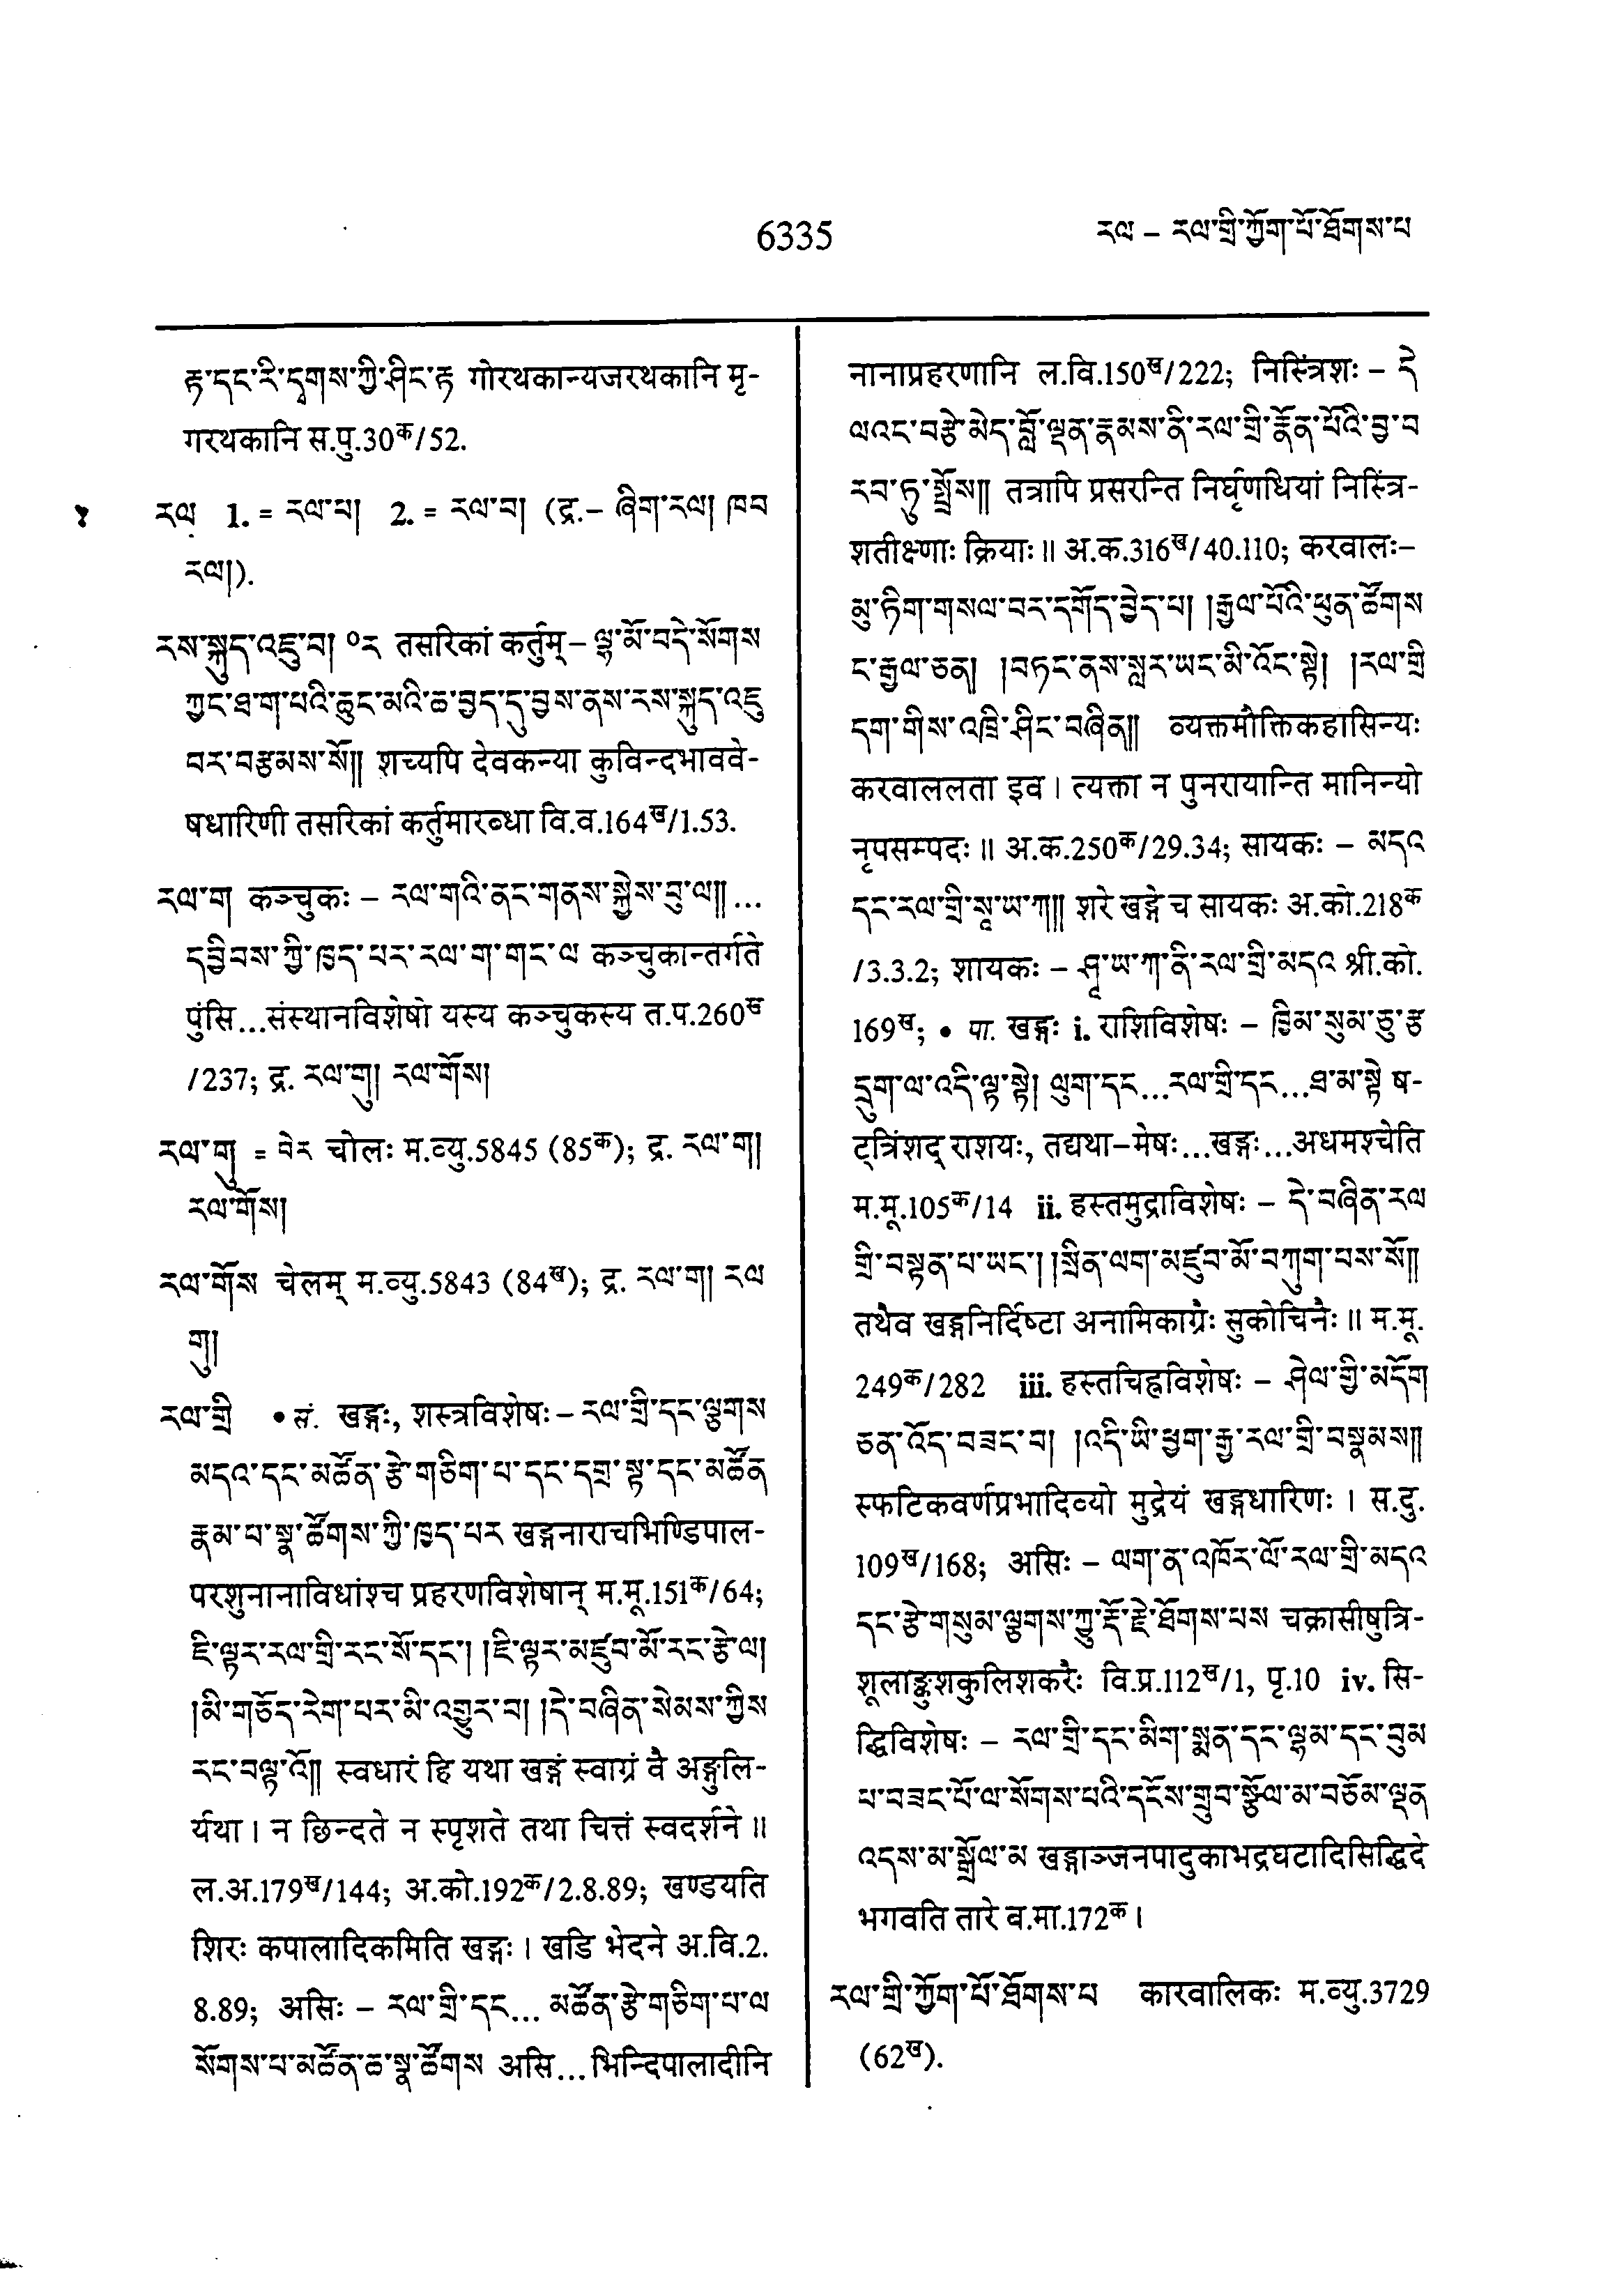 6335
རལ – རལ་གྲི་ཀྱོག་པོ་ཐོགས་པ
རྟ་དང་རི་དྭགས་ཀྱི་ཤིང་རྟ गोरथकान्यजरथकानि मृ-
गरथकानि स.पु.30क/52.
རལ 1. = རལ་པ། 2. = རལ་བ། (द्र.– ཞིག་རལ། ཁབ
རལ།).
རས་སྐུད་འཇུ་བ། ०ར तसरिकां कर्तुम् – ལྷ་མོ་བདེ་སོགས
ཀྱང་ཐ་ག་པའི་ཆུང་མའི་ཆ་བྱད་དུ་བྱས་ནས་རས་སྐུད་འཇུ
བར་བརྩམས་སོ།། शच्यपि देवकन्या कुविन्दभाववे-
षधारिणी तसरिकां कर्तुमारब्धा वि.व.164ख/1.53.
རལ་ག། कञ्चुकः – རལ་གའི་ནང་གནས་སྐྱེས་བུ་ལ།། ...
དབྱིབས་ཀྱི་ཁྱད་པར་རལ་ག་གང་ལ कञ्चुकान्तर्गते
पुंसि...संस्थानविशेषो यस्य कञ्चुकस्य त.प.260ख
/237; द्र. རལ་གུ། རལ་གོས།
རལ་གུ = བེར चोलः म.व्यु.5845 (85क); द्र. རལ་ག།
རལ་གོས།
རལ་གོས चेलम् म.व्यु.5843 (84ख); द्र. རལ་ག། རལ
གུ།
རལ་གྲི • सं. खङ्गः, शस्त्रविशेषः – རལ་གྲི་དང་ལྕགས
མདའ་དང་མཚོན་རྩེ་གཅིག་པ་དང་དགྲ་སྟ་དང་མཚོན
རྣམ་པ་སྣ་ཚོགས་ཀྱི་ཁྱད་པར खङ्गनाराचभिण्डिपाल-
परशुनानाविधांश्च प्रहरणविशेषान् म.मू.151क/64;
ཇི་ལྟར་རལ་གྲི་རང་སོ་དང་། །ཇི་ལྟར་མཛུབ་མོ་རང་རྩེ་ལ།
།མི་གཅོད་རེག་པར་མི་འགྱུར་བ། །དེ་བཞིན་སེམས་ཀྱིས
རང་བལྟ་འོ།། स्वधारं हि यथा खङ्गं स्वाग्रं वै अङ्गुलि-
र्यथा । न छिन्दते न स्पृशते तथा चित्तं स्वदर्शने ॥
ल.अ.179ख/144; अ.को.192क/2.8.89; खण्डयति
शिरः कपालादिकमिति खङ्गः । खडि भेदने अ.वि.2.
8.89; असिः – རལ་གྲི་དང... མཚོན་རྩེ་གཅིག་པ་ལ
སོགས་པ་མཚོན་ཆ་སྣ་ཚོགས असि...भिन्दिपालादीनि
नानाप्रहरणानि ल.वि.150ख/222; निस्त्रिंशः – དེ
ལའང་བརྩེ་མེད་བློ་ལྡན་རྣམས་ནི་རལ་གྲི་རྣོན་པོའི་བྱ་བ
རབ་ཏུ་སྤྲོས།། तत्रापि प्रसरन्ति निर्घृणधियां निस्त्रिं-
शतीक्ष्णाः क्रियाः ॥ अ.क.316ख/40.110; करवालः–
མུ་ཏིག་གསལ་བར་དགོད་བྱེད་པ། །རྒྱལ་པོའི་ཕུན་ཚོགས
ང་རྒྱལ་ཅན། །བཏང་ནས་སླར་ཡང་མི་འོང་སྟེ། །རལ་གྲི
དག་གིས་འཁྲི་ཤིང་བཞིན།། व्यक्तमौक्तिकहासिन्यः
करवाललता इव । त्यक्ता न पुनरायान्ति मानिन्यो
नृपसम्पदः ॥ अ.क.250क/29.34; सायकः – མདའ
དང་རལ་གྲི་སཱ་ཡ་ཀ།། शरे खङ्गे च सायकः अ.को.218क
/3.3.2; शायकः – ཤཱ་ཡ་ཀ་ནི་རལ་གྲི་མདའ श्री.को.
169ख; • पा. खङ्गः i. राशिविशेषः – ཁྱིམ་སུམ་ཅུ་རྩ
དྲུག་ལ་འདི་ལྟ་སྟེ། ལུག་དང...རལ་གྲི་དང...ཐ་མ་སྟེ ष-
ट्त्रिंशद् राशयः, तद्यथा–मेषः...खङ्गः...अधमश्चेति
म.मू.105क/14 ii. हस्तमुद्राविशेषः – དེ་བཞིན་རལ
གྲི་བསྟན་པ་ཡང་། །སྲིན་ལག་མཛུབ་མོ་བཀུག་པས་སོ།།
तथैव खङ्गनिर्दिष्टा अनामिकाग्रैः सुकोचिनैः ॥ म.मू.
249क/282 iii. हस्तचिह्नविशेषः – ཤེལ་གྱི་མདོག
ཅན་འོད་བཟང་བ། །འདི་ཡི་ཕྱག་རྒྱ་རལ་གྲི་བསྣམས།།
स्फटिकवर्णप्रभादिव्यो मुद्रेयं खङ्गधारिणः । स.दु.
109ख/168; असिः – ལག་ན་འཁོར་ལོ་རལ་གྲི་མདའ
དང་རྩེ་གསུམ་ལྕགས་ཀྱུ་རྡོ་རྗེ་ཐོགས་པས चक्रासीषुत्रि-
शूलाङ्कुशकुलिशकरैः वि.प्र.112ख/1, पृ.10 iv. सि-
द्धिविशेषः – རལ་གྲི་དང་མིག་སྨན་དང་ལྷམ་དང་བུམ
པ་བཟང་པོ་ལ་སོགས་པའི་དངོས་གྲུབ་སྩོལ་མ་བཅོམ་ལྡན
འདས་མ་སྒྲོལ་མ खङ्गाञ्जनपादुकाभद्रघटादिसिद्धिदे
भगवति तारे ब.मा.172क ।
རལ་གྲི་ཀྱོག་པོ་ཐོགས་པ कारवालिकः म.व्यु.3729
(62ख).